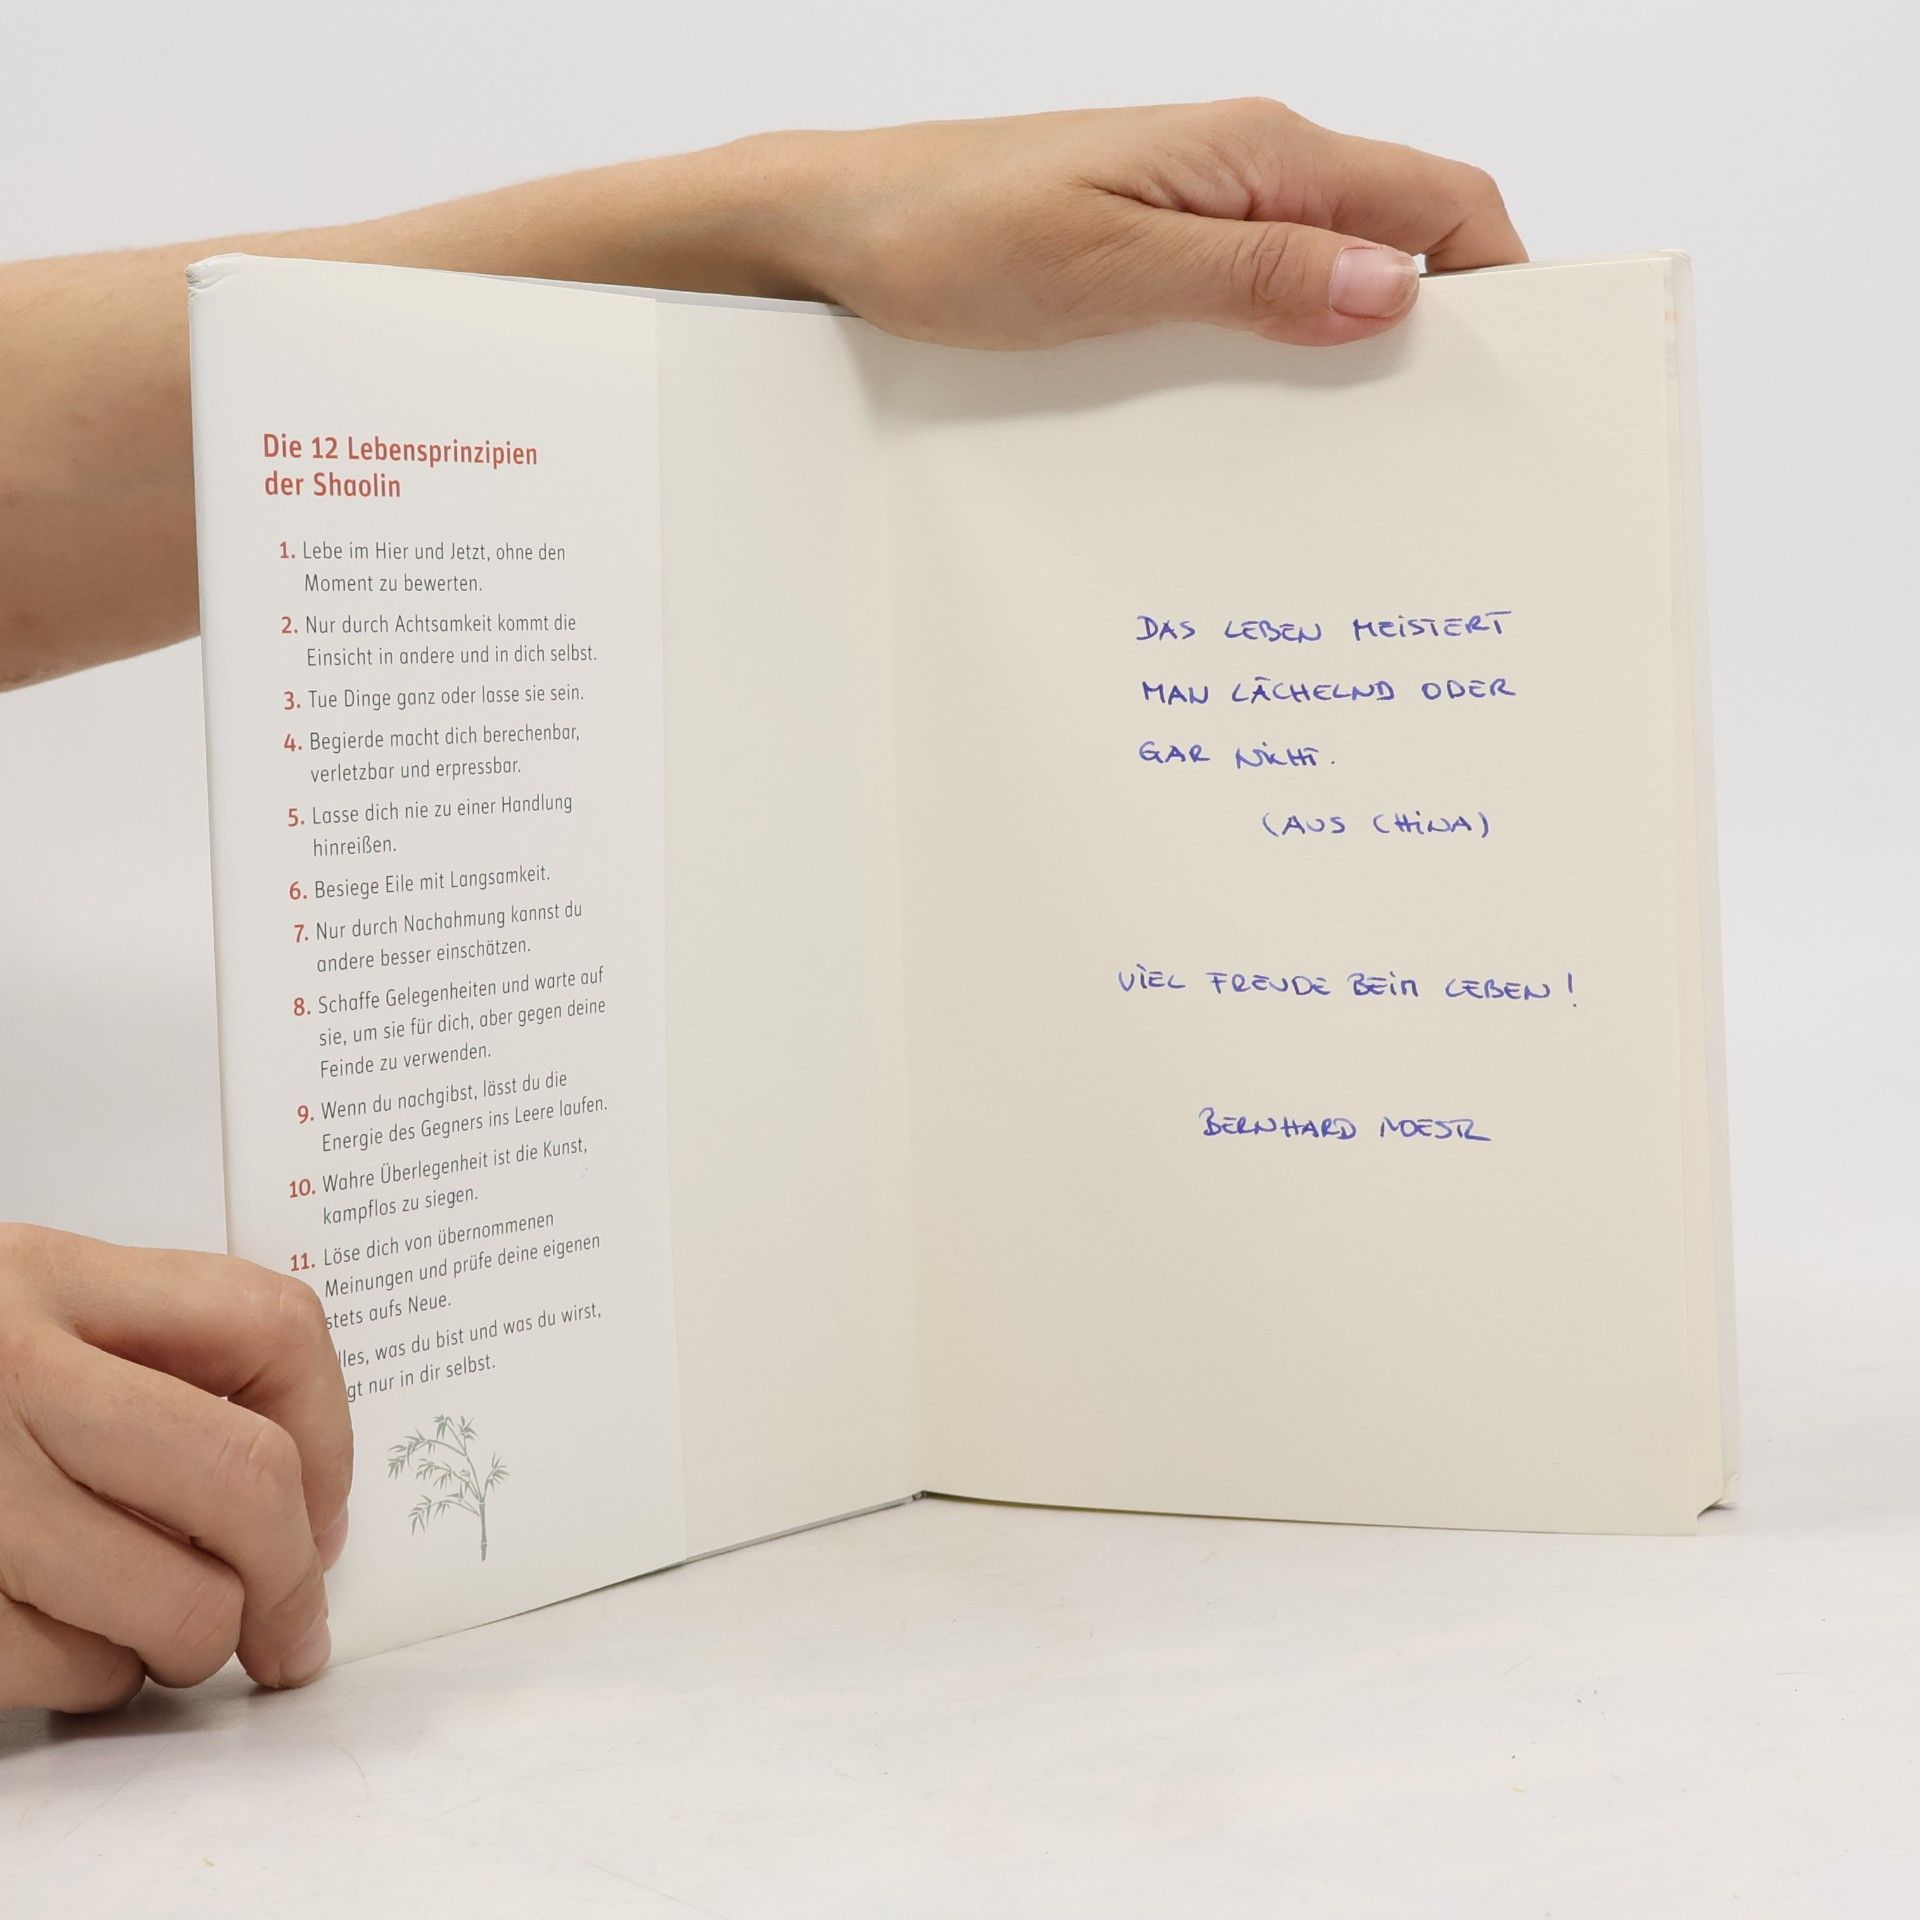 Die 12 Lebensprinzipien
der Shaolin
1. Lebe im Hier und Jetzt, ohne den
Moment zu bewerten.
2. Nur durch Achtsamkeit kommt die
Einsicht in andere und in dich selbst.
3. Tue Dinge ganz oder lasse sie sein.
4. Begierde macht dich berechenbar,
verletzbar und erpressbar.
5. Lasse dich nie zu einer Handlung
hinreißen.
6. Besiege Eile mit Langsamkeit.
7. Nur durch Nachahmung kannst du
andere besser einschätzen.
8. Schaffe Gelegenheiten und warte auf
sie, um sie für dich, aber gegen deine
Feinde zu verwenden.
9. Wenn du nachgibst, lässt du die
Energie des Gegners ins Leere laufen.
10. Wahre Überlegenheit ist die Kunst,
kampflos zu siegen.
11. Löse dich von übernommenen
Meinungen und prüfe deine eigenen
stets aufs Neue.
lles, was du bist und was du wirst,
gt nur in dir selbst.
DAS LEBEN MEISTERT
MAN LÄCHELND ODER
GAR NICHT.
(AUS CHINA)
VIEL FREUDE BEIM LEBEN!
BERNHARD